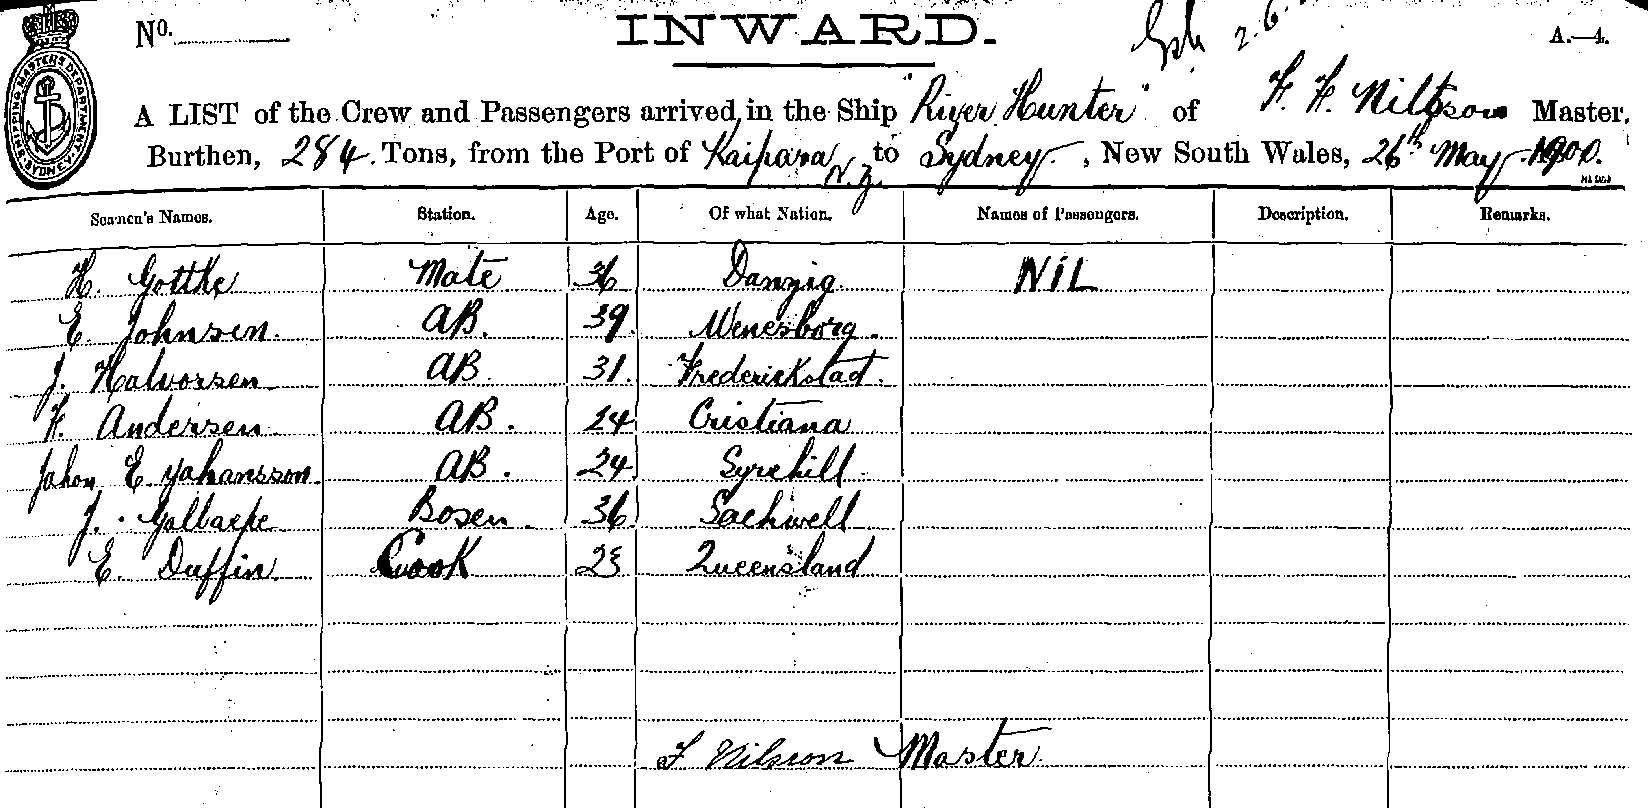 No.
INWARD.
2.6.
A.—4.
SHIPPING MASTER'S DEPARTMENT SYDNEY N.S.W.
A LIST of the Crew and Passengers arrived in the Ship "River Hunter" of F. F. Nilsson Master,
Burthen, 284 Tons, from the Port of Kaipara N.Z. to Sydney, New South Wales, 26th May 1900.
Seamen's Names. Station. Age. Of what Nation. Names of Passengers. Description. Remarks.
H. Gotthe Mate 36 Danzig NIL
E. Johnsen. AB. 39. Wenesborg.
J. Halvorsen AB. 31. Frederickstad.
F. Andersen AB. 24 Cristiana
Johan E. Yohansson. AB. 24 Syrehill
J. Bosen. 36 Sachwell
E. Duffin Cook 23 Queensland
F Nilsson Master